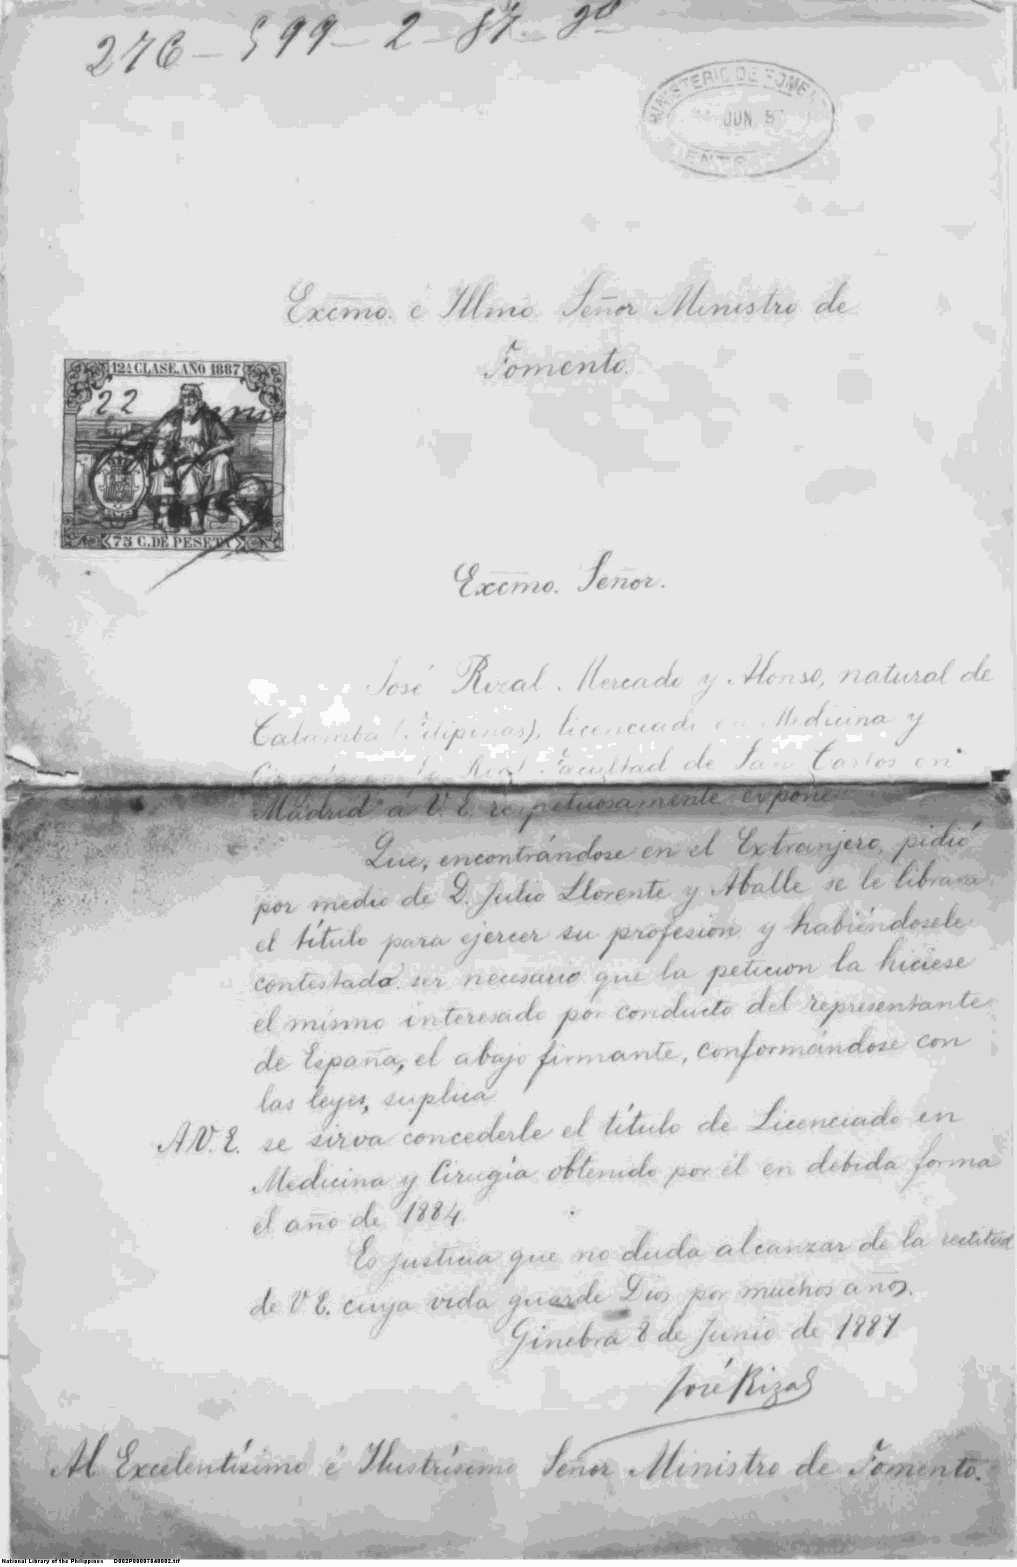 276-599-2-87. 2º
MINISTERIO DE FOMENTO
JUN. 8
Excmo. é Illmo. Señor Ministro de
Fomento.
12ª CLASE. AÑO 1887
22
75 C. DE PESETA
Excmo. Señor.
José Rizal Mercado y Alonso, natural de
Calamba (Filipinas), licenciado en Medicina y
Cirugía en la Real Facultad de San Carlos en
Madrid á V. E. respetuosamente expone
Que, encontrándose en el Extranjero, pidió
por medio de D. Julio Llorente y Aballe se le librara
el título para ejercer su profesion y habiéndosele
contestado ser necesario que la peticion la hiciese
el mismo interesado por conducto del representante
de España, el abajo firmante, conformándose con
las leyes, suplica
A V. E. se sirva concederle el título de Licenciado en
Medicina y Cirugía obtenido por él en debida forma
el año de 1884.
Es justicia que no duda alcanzar de la rectitud
de V. E. cuya vida guarde Dios por muchos años.
Ginebra 8 de Junio de 1887
José Rizal
Al Excelentísimo é Ilustrísimo Señor Ministro de Fomento.
National Library of the Philippines